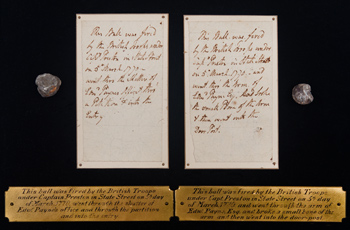 This Ball was fired
by the British troops under
Capt Preston in State Street
on 5th March 1770
went thro the Shutter of
Edwd Paynes
& into the
Entry
This Ball was fired
by the British troops under
Capt Preston in State Street
on 5th March 1770, and
went thro the Arm of
Edwd Payne
the Arm
& then went into the
Door Post
This ball was fired by the British Troops
under Captain Preston in State Street on 5th day
of March 1770, went through the shutter of
Edw. Payne's office and through the partition
and into the entry
This ball was fired by the British Troops
under Capt Preston in State Street on 5th day
of March 1770 and went through the arm of
Edw. Payne, Esq. and broke a small bone of the
arm and then went into the door post